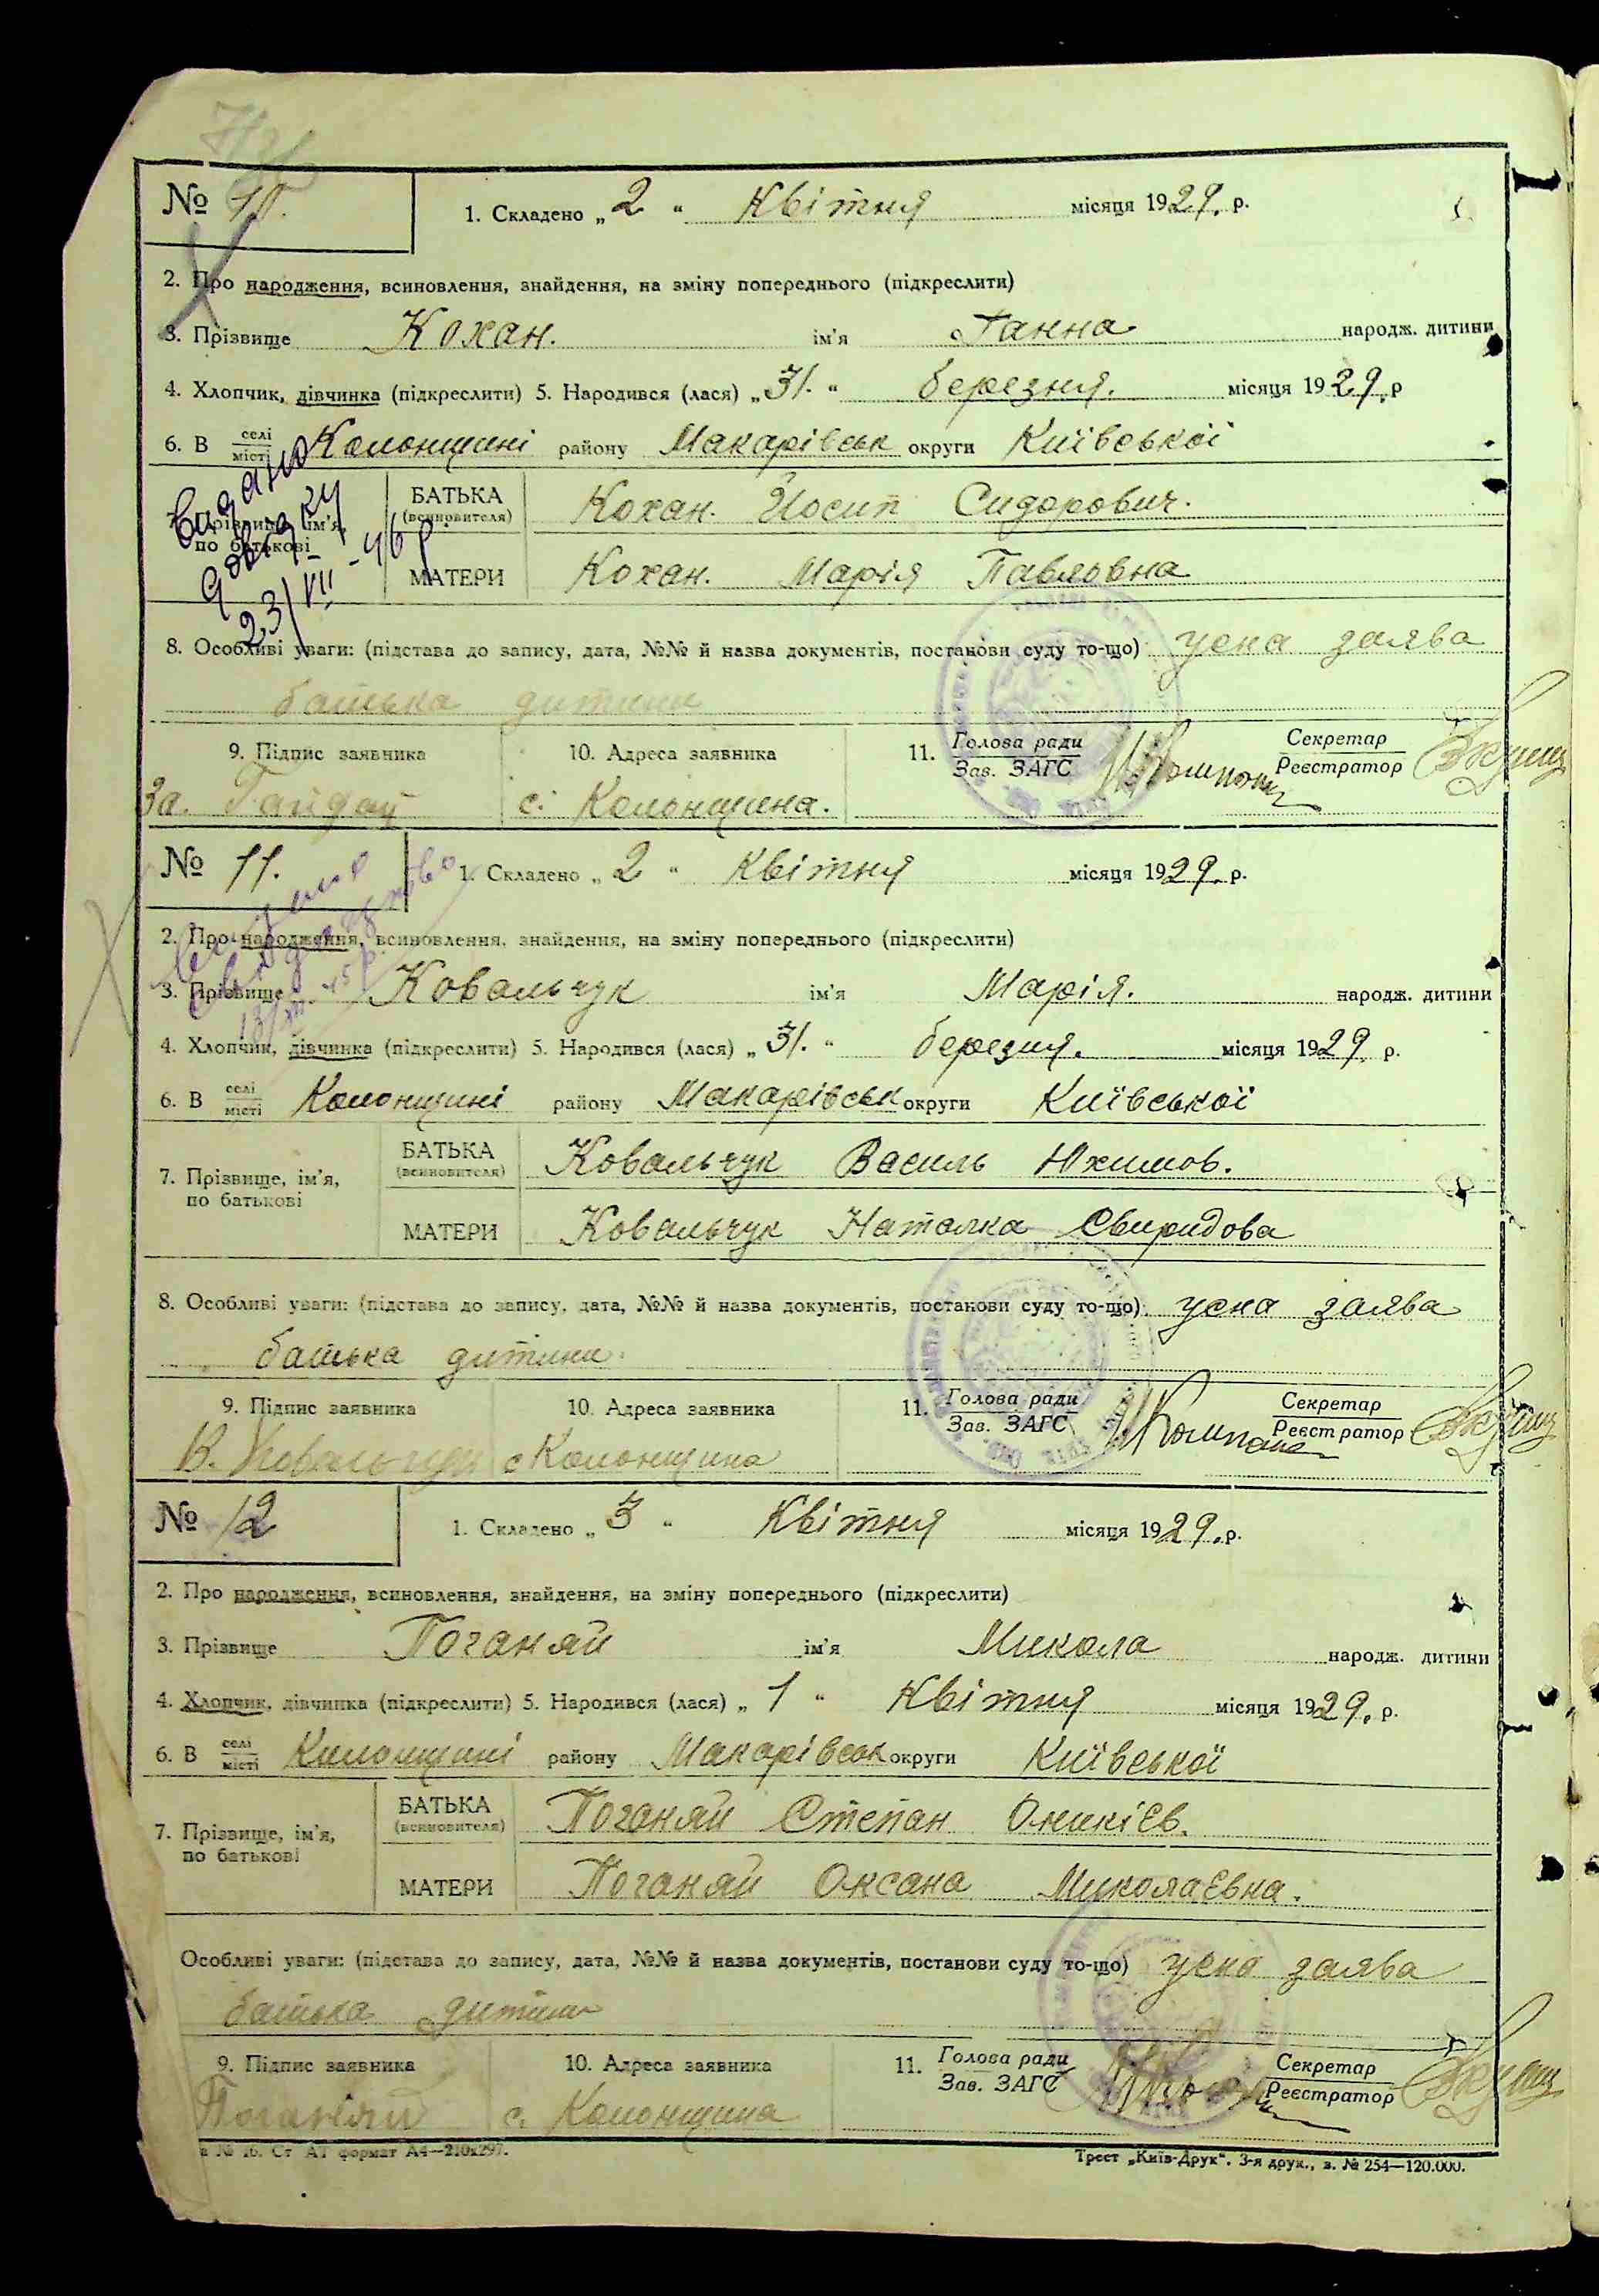 № 10.
1. Складено „2" Квітня місяця 1929. р.
2. Про народження, всиновлення, знайдення, на зміну попереднього (підкреслити)
3. Прізвище Кохан. ім'я Ганна народж. дитини
4. Хлопчик, дівчинка (підкреслити) 5. Народився (лася) „31." березня. місяця 1929. р
6. В селі/місті Колонщині району Макарівськ округи Київської
Видано
довідку
23/VII-46р
7. Прізвище, ім'я, по батькові
БАТЬКА (всиновителя) Кохан. Йосип Сидорович.
МАТЕРИ Кохан. Марія Павловна
8. Особливі уваги: (підстава до запису, дата, №№ й назва документів, постанови суду то-що) усна заява
батька дитини
9. Підпис заявника 10. Адреса заявника 11. Голова ради/Зав. ЗАГС Секретар/Реєстратор
За. с. Колонщина.
№ 11.
1. Складено „2" Квітня місяця 1929. р.
2. Про народження, всиновлення, знайдення, на зміну попереднього (підкреслити)
3. Прізвище Ковальчук ім'я Марія. народж. дитини
4. Хлопчик, дівчинка (підкреслити) 5. Народився (лася) „31." березня. місяця 1929 р.
6. В селі/місті Колонщині району Макарівськ округи Київської
7. Прізвище, ім'я, по батькові
БАТЬКА (всиновителя) Ковальчук Василь Юхимов.
МАТЕРИ Ковальчук Наталка Свиридова
8. Особливі уваги: (підстава до запису, дата, №№ й назва документів, постанови суду то-що) усна заява
батька дитини.
9. Підпис заявника 10. Адреса заявника 11. Голова ради/Зав. ЗАГС Секретар/Реєстратор
В. Ковальчук с Колонщина
№ 12
1. Складено „3" Квітня місяця 1929. р.
2. Про народження, всиновлення, знайдення, на зміну попереднього (підкреслити)
3. Прізвище Поганяй ім'я Микола народж. дитини
4. Хлопчик, дівчинка (підкреслити) 5. Народився (лася) „1" Квітня місяця 1929. р.
6. В селі/місті Колонщині району Макарівськ округи Київської
7. Прізвище, ім'я, по батькові
БАТЬКА (всиновителя) Поганяй Степан Оникієв.
МАТЕРИ Поганяй Оксана Миколаєвна.
Особливі уваги: (підстава до запису, дата, №№ й назва документів, постанови суду то-що) усна заява
батька дитини
9. Підпис заявника 10. Адреса заявника 11. Голова ради/Зав. ЗАГС Секретар/Реєстратор
Поганяй с. Колонщина
а № 16. Ст АТ формат А4—210x297. Трест „Київ-Друк". 3-я друк., з. № 254—120.000.